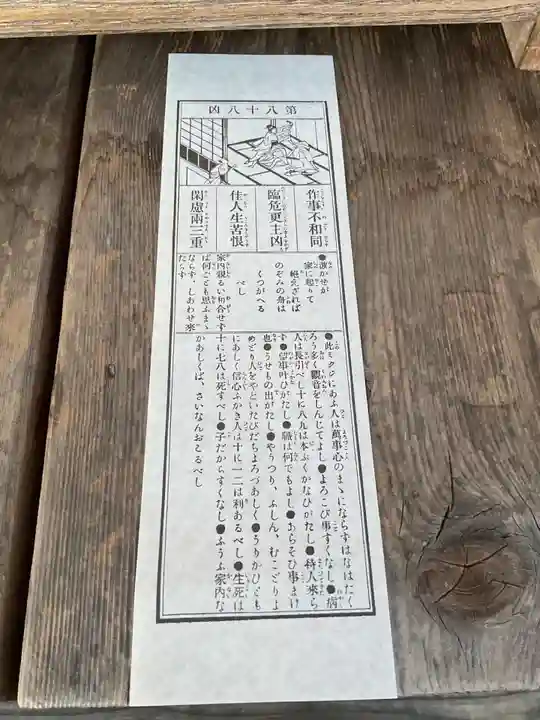 第八十八凶
作事不和同
臨危更主凶
佳人生苦恨
閑慮兩三重
●激かせが
家に起りて
絶えざれば
のぞみの舟は
くつがへる
べし
家内親るい和合せず
ば何ごとも思ふまゝ
ならず、しあわせ來
たらず
●此ミクジにあふ人は萬事心のまゝにならずはなはたく
ろう多く觀音をしんじてよし●よろこび事すくなし●病
人は長引べし十に八九は本ぷくかなひがたし●待人來ら
ず●望事叶ひがたし●職は何でもよし●あらそひ事まけ
也●うせもの出がたし●やうつり、ふしん、むこどりよ
めどり人をやといたびだちよろづあしく●うりかひとも
にあしく信心ふかき人は十に一二は利あるべし●生死は
十に七八は死すべし●子だからすくなし●ふうふ家内な
かあしくば、さいなんおこるべし